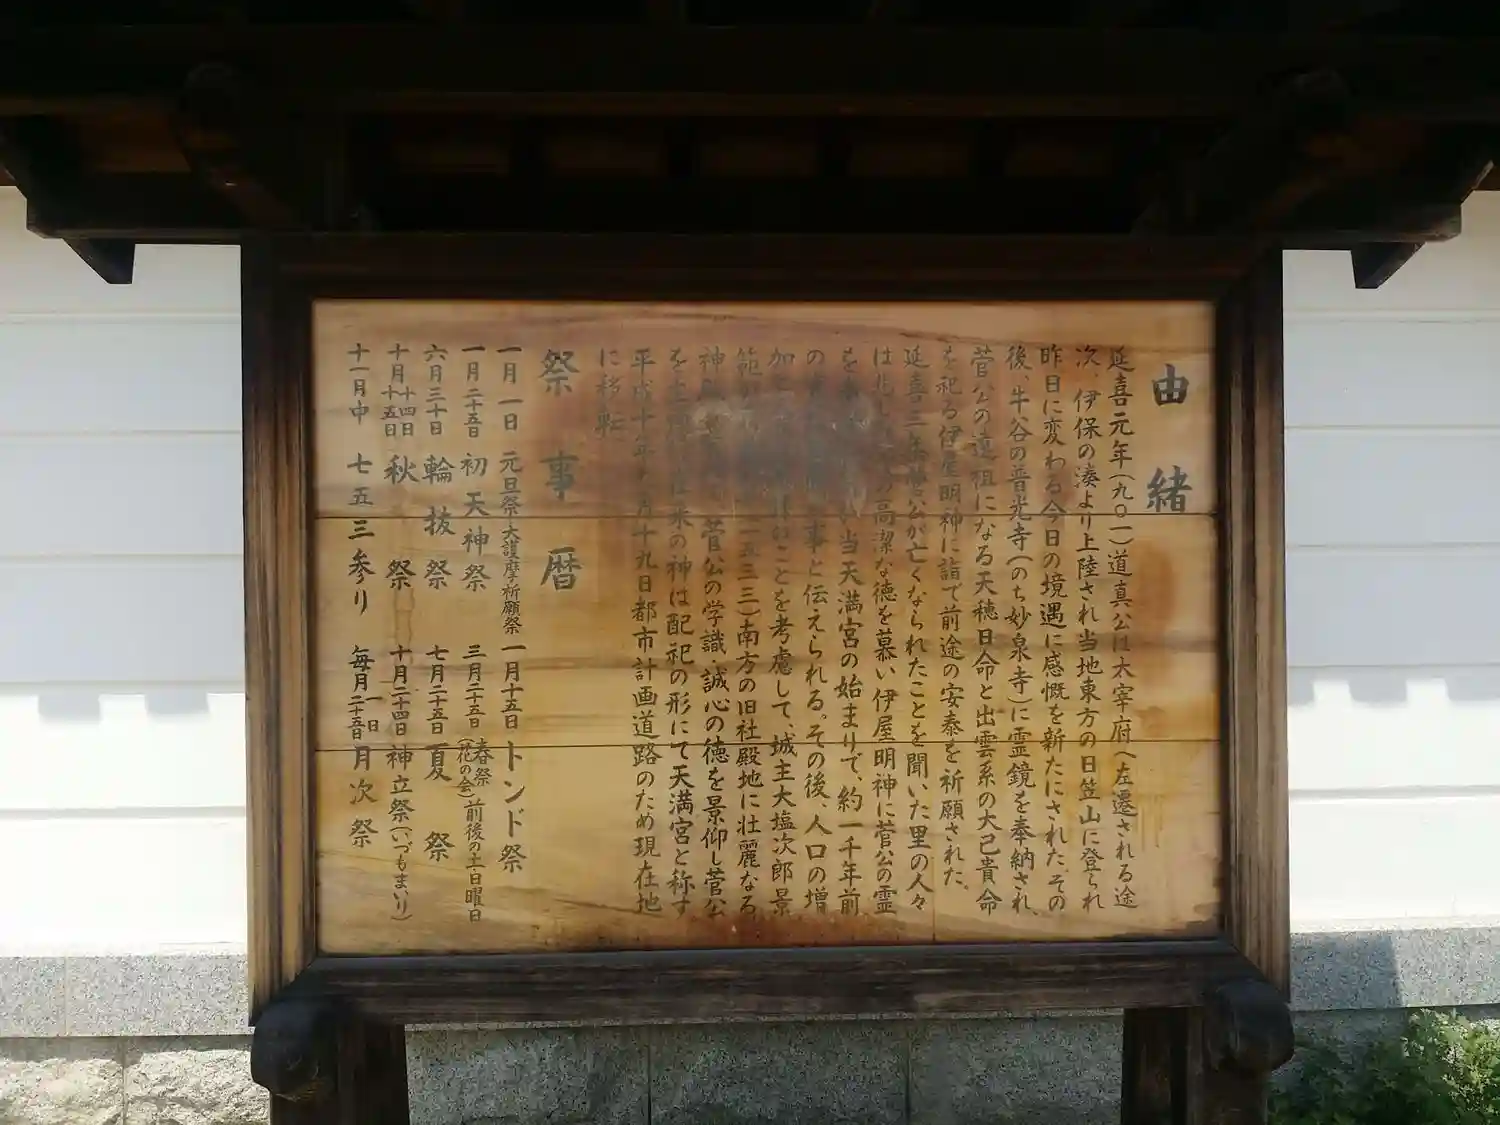 由緒
延喜元年(九〇一)道真公は太宰府へ左遷される途
次、伊保の湊より上陸され当地東方の日笠山に登られ
昨日に変わる今日の境遇に感慨を新たにされた。その
後、牛谷の普光寺(のち妙泉寺)に霊鏡を奉納され、
菅公の遠祖になる天穂日命と出雲系の大己貴命
を祀る伊屋明神に詣で前途の安泰を祈願された。
延喜三年菅公が亡くなられたことを聞いた里の人々
は 高潔な徳を慕い伊屋明神に菅公の霊
を 当天満宮の始まりで、約一千年前
の 事と伝えられる。その後、人口の増
加 いことを考慮して、城主大塩次郎景
範 一五三三)南方の旧社殿地に壮麗なる
神 菅公の学識、誠心の徳を景仰し菅公
を主 来の神は配祀の形にて天満宮と称す
平成十年 月十九日都市計画道路のため現在地
に移転
祭事暦
一月一日 元旦祭・大護摩祈願祭 一月十五日 トンド祭
一月二十五日 初天神祭 三月二十五日 春祭(花の会)前後の土・日曜日
六月三十日 輪抜祭 七月二十五日 夏祭
十月十四日十五日 秋祭 十月二十四日 神立祭(いづもまいり)
十一月中 七五三参り 毎月一日二十五日 月次祭